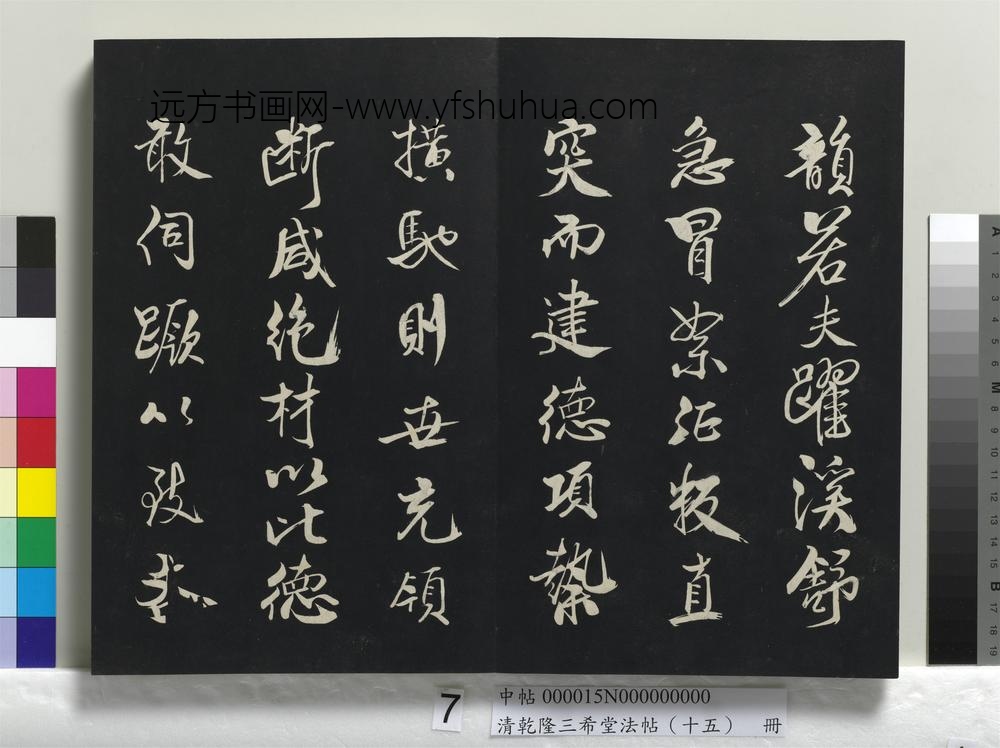 远方书画网-www.yfshuhua.com
韻若夫躍溪舒
急冒絮征叛直
突而建德項縶
橫馳則世充領
断咸絕材以比德
敢伺蹶以致
7
中帖 000015N000000000
清乾隆三希堂法帖（十五） 冊
A 1 2 3 4 5 6 M 8 9 10 11 12 13 14 15 B 17 18 19